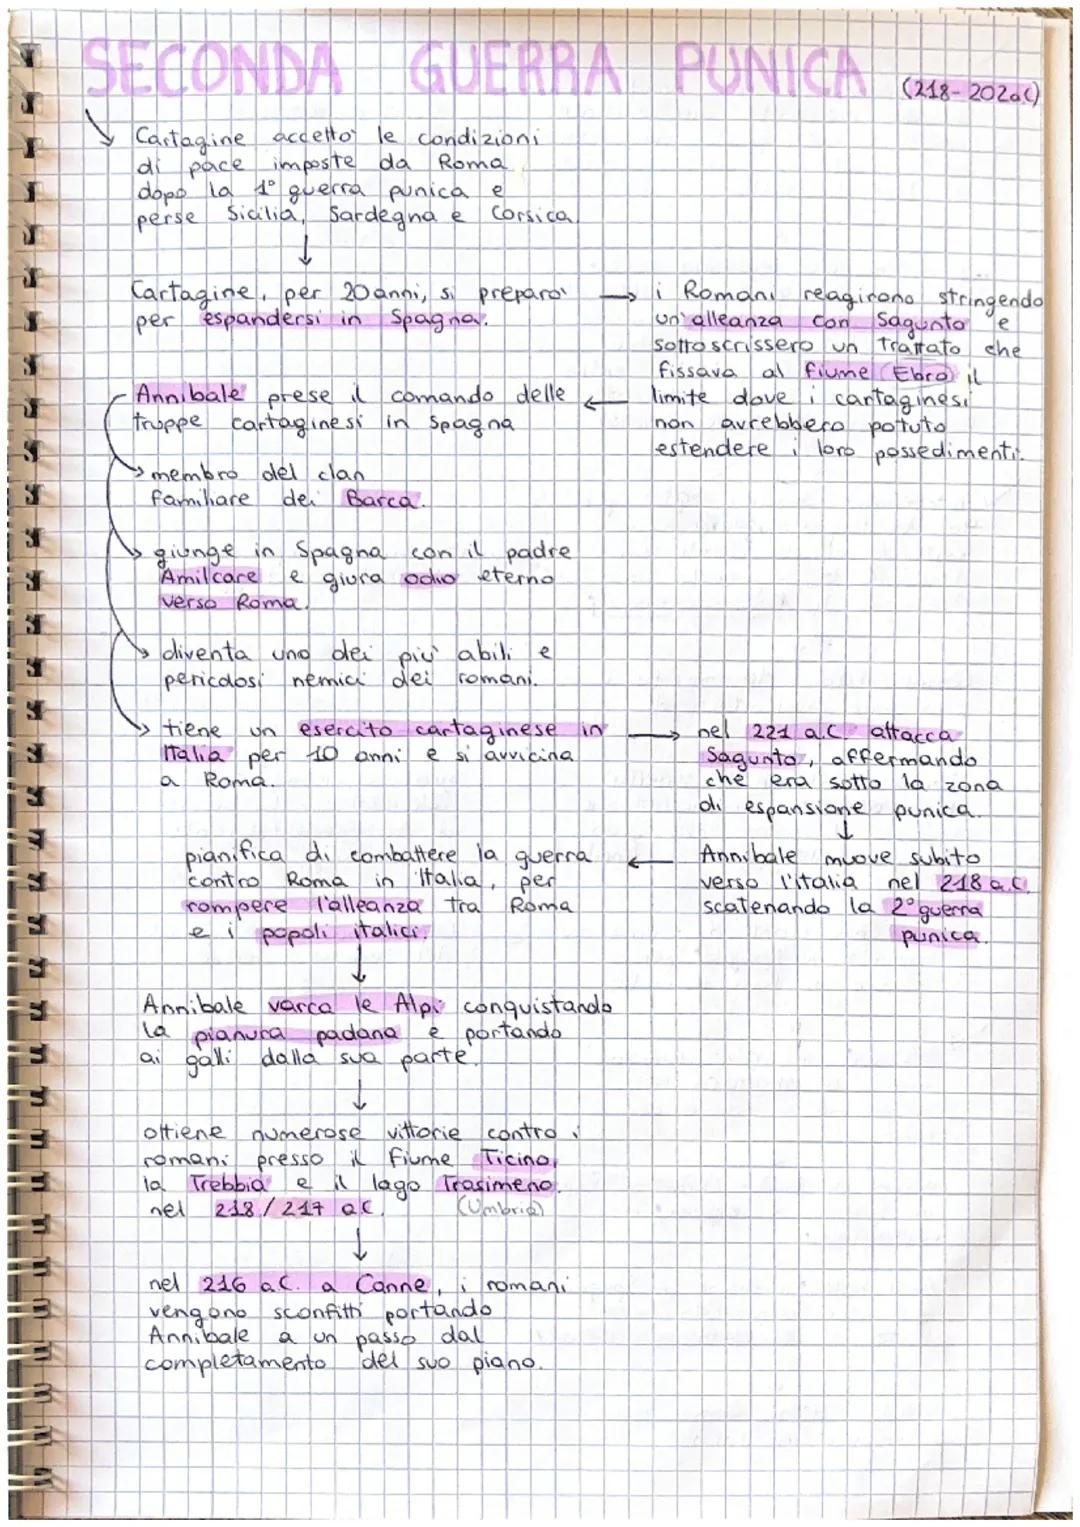 SECONDA GUERRA PUNICA (218-202 a.C)
Cartagine accettò le condizioni
di pace imposte da Roma
dopo la 1° guerra punica e
perse Sicilia, Sardegna e Corsica.
Cartagine, per 20 anni, si preparò
per espandersi in Spagna.
i Romani reagirono stringendo
un'alleanza con Sagunto e
sottoscrissero un trattato che
fissava al fiume Ebro il
limite dove i cartaginesi
non avrebbero potuto
estendere i loro possedimenti.
Annibale prese il comando delle
truppe cartaginesi in Spagna
membro del clan
familiare dei Barca.
giunge in Spagna con il padre
Amilcare e giura odio eterno
verso Roma.
diventa uno dei più abili e
pericolosi nemici dei romani.
tiene un esercito cartaginese in
Italia per 10 anni e si avvicina
a Roma.
nel 221 a.C. attacca
Sagunto, affermando
che era sotto la zona
di espansione punica.
Annibale muove subito
verso l'italia nel 218 a.C.
scatenando la 2° guerra
punica.
pianifica di combattere la guerra
contro Roma in Italia, per
rompere l'alleanza tra Roma
e i popoli italici.
Annibale varca le Alpi conquistando
la pianura padana e portando
ai galli dalla sua parte.
ottiene numerose vittorie contro i
romani presso il fiume Ticino,
la Trebbia e il lago Trasimeno.
nel 218/217 a.C. (Umbria)
nel 216 a.C. a Canne, i romani
vengono sconfitti portando
Annibale a un passo dal
completamento del suo piano.